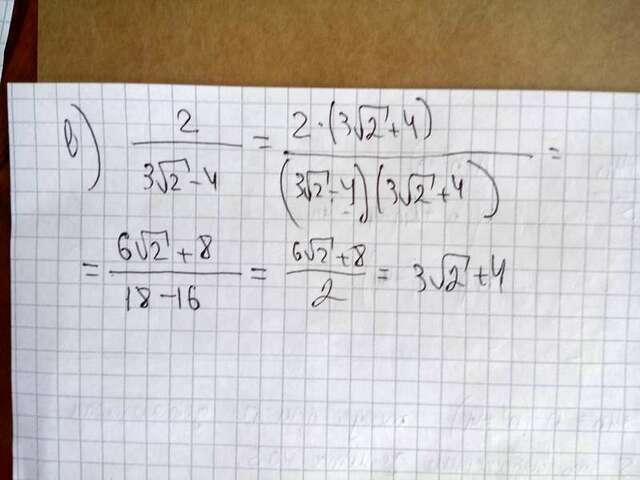 в) 2/(3√2-4) = 2·(3√2+4)/((3√2-4)(3√2+4)) =
= (6√2+8)/(18-16) = (6√2+8)/2 = 3√2+4